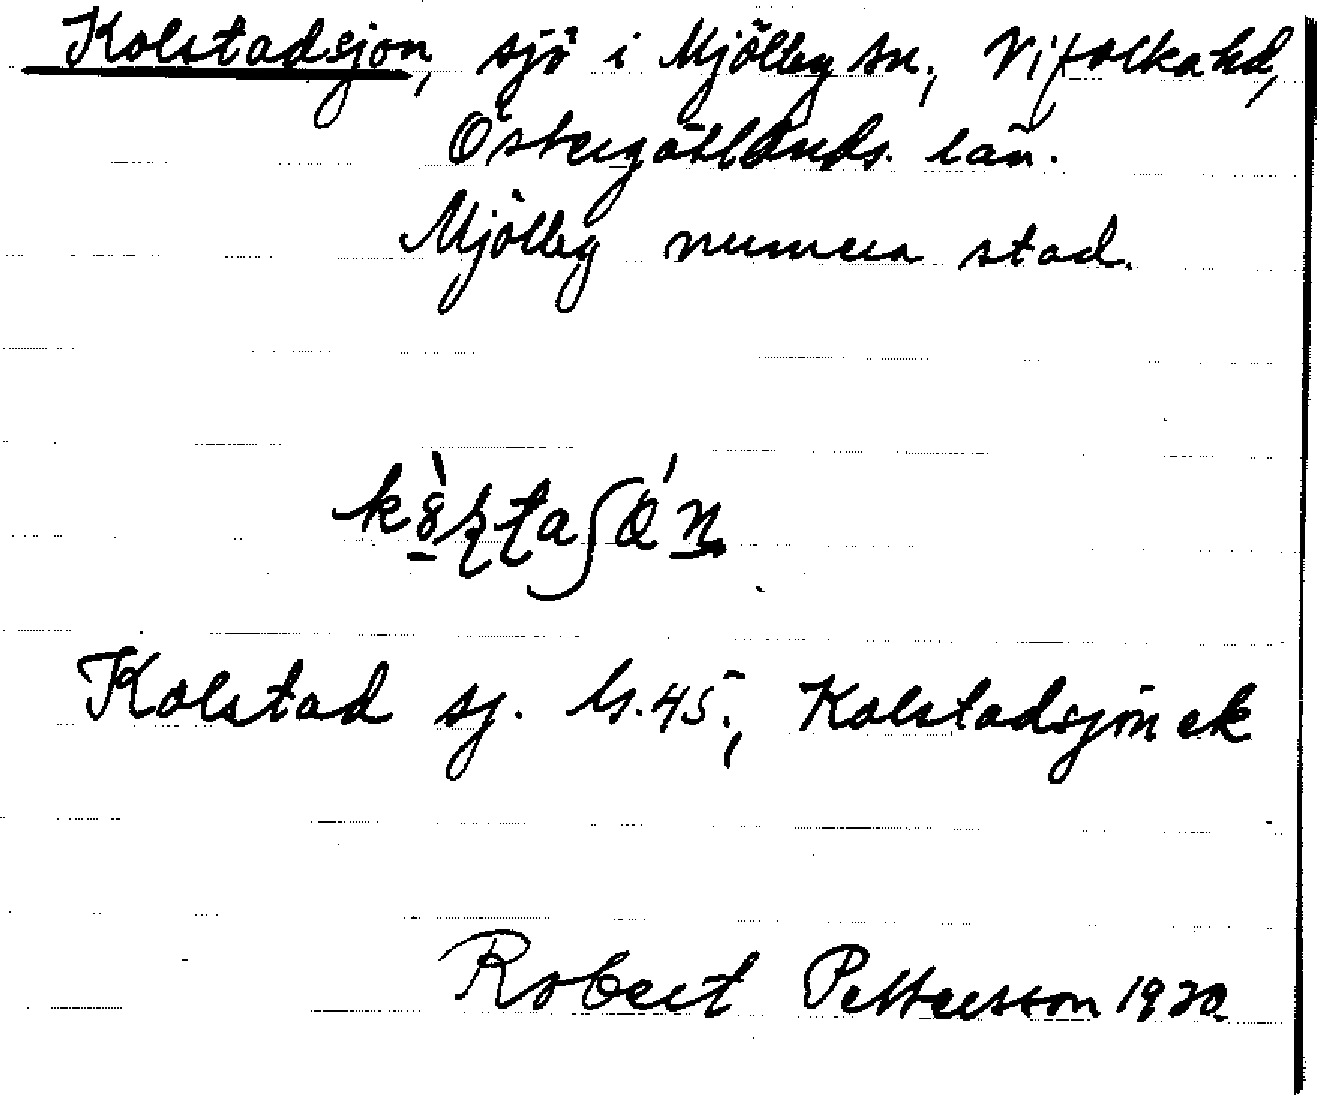 Kolstadsjön, sjö i Mjölby sn., Vifolka hd,
Östergötlands län.
Mjölby numera stad.
Kolstad sj. G.45., Kolstadsjön ek
Robert Pettersson 1920